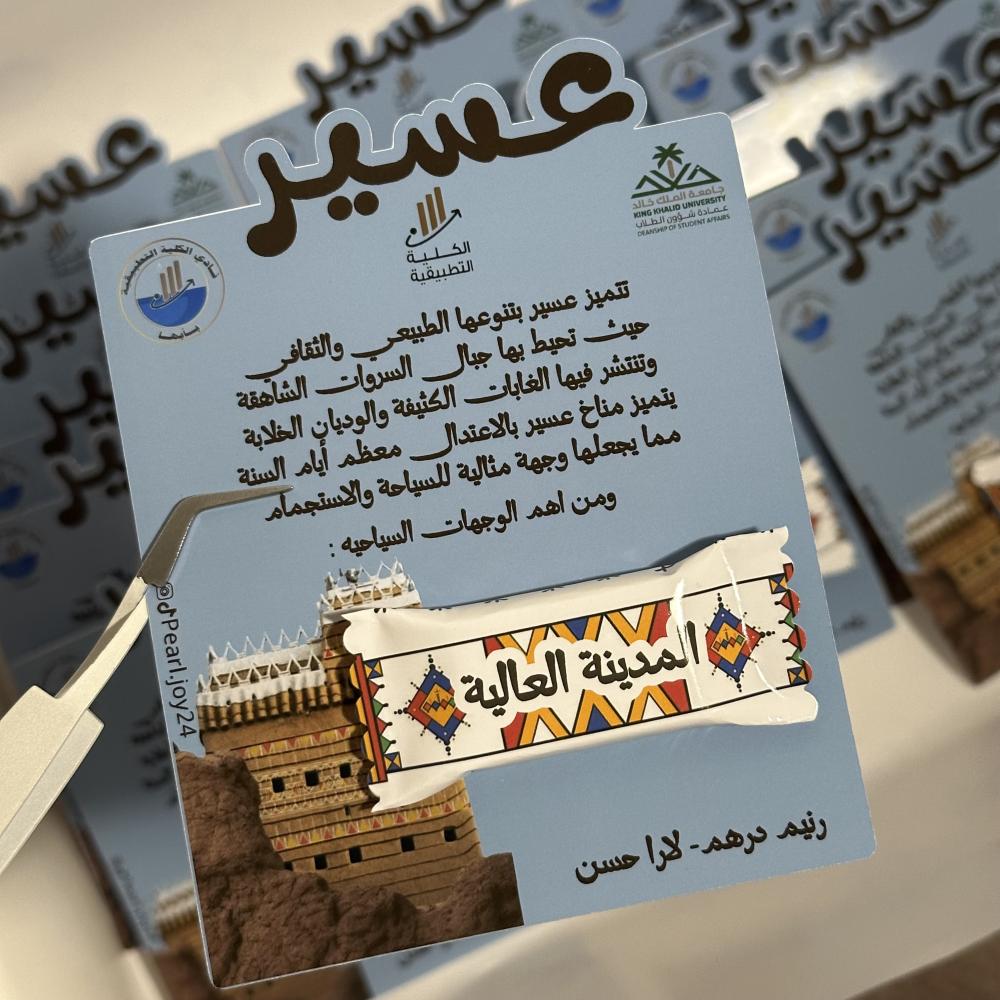 عسير
الكلية
التطبيقية
جامعة الملك خالد
KING KHALID UNIVERSITY
عمادة شؤون الطلاب
DEANSHIP OF STUDENT AFFAIRS
نادي الكلية التطبيقية
بأبها
تتميز عسير بتنوعها الطبيعي والثقافي
حيث تحيط بها جبال السروات الشاهقة
وتنتشر فيها الغابات الكثيفة والوديان الخلابة
يتميز مناخ عسير بالاعتدال معظم أيام السنة
مما يجعلها وجهة مثالية للسياحة والاستجمام
ومن اهم الوجهات السياحيه :
المدينة العالية
@Pearl.joy24
رنيم درهم- لارا حسن
عسير
عسير
عسير
عسير